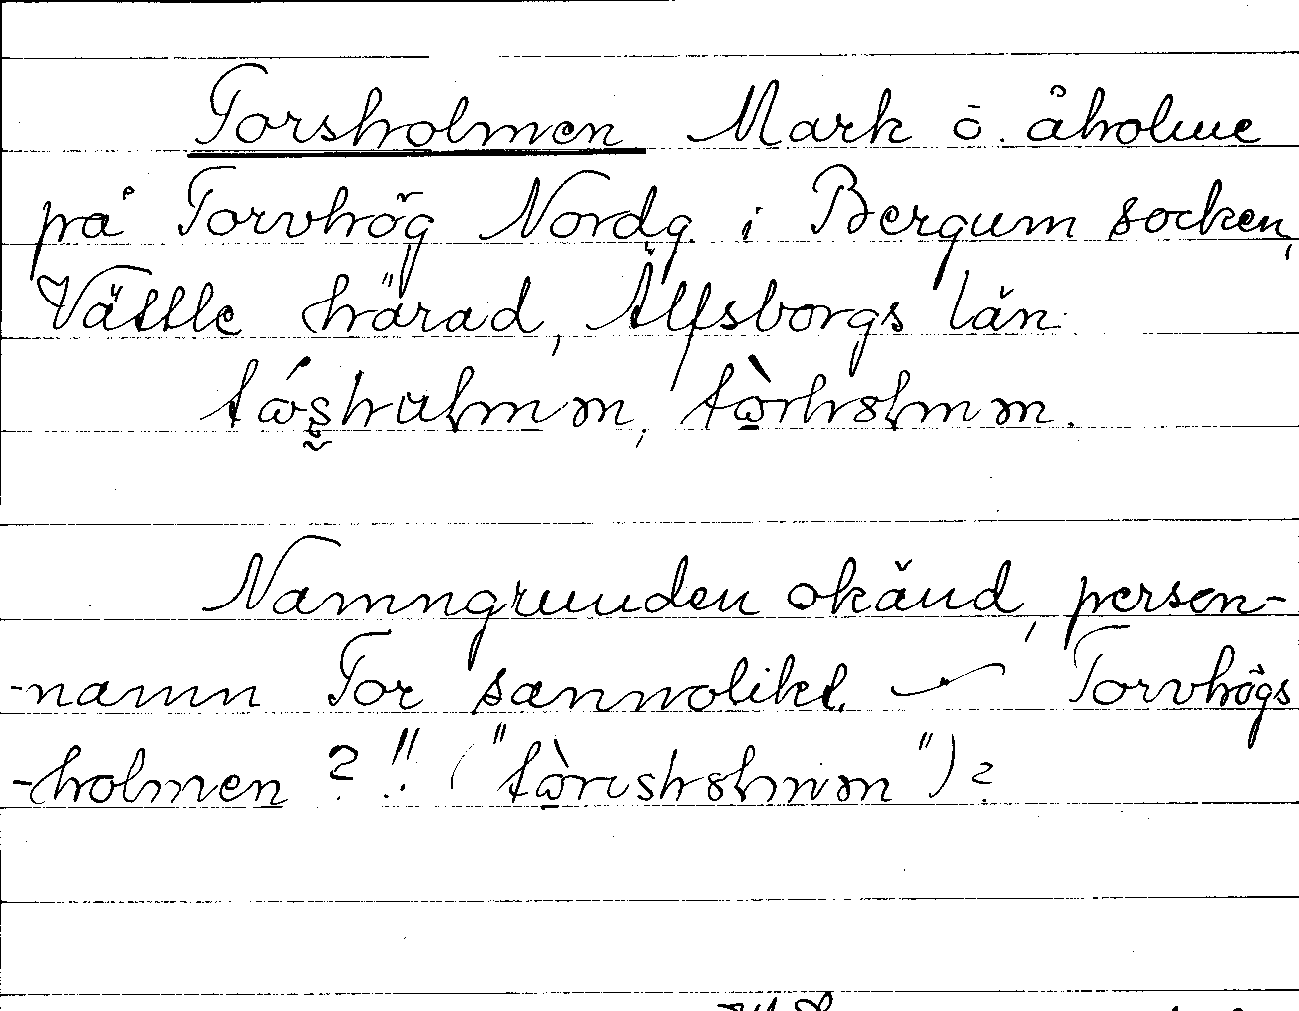 Torsholmen Mark o. åholme
på Torvhög Nordg. i Bergum socken,
Vättle härad, Älfsborgs län.
Namngrunden okänd, person-
-namn Tor sannolikt. Torvhögs
-holmen ?!! (" ") ?